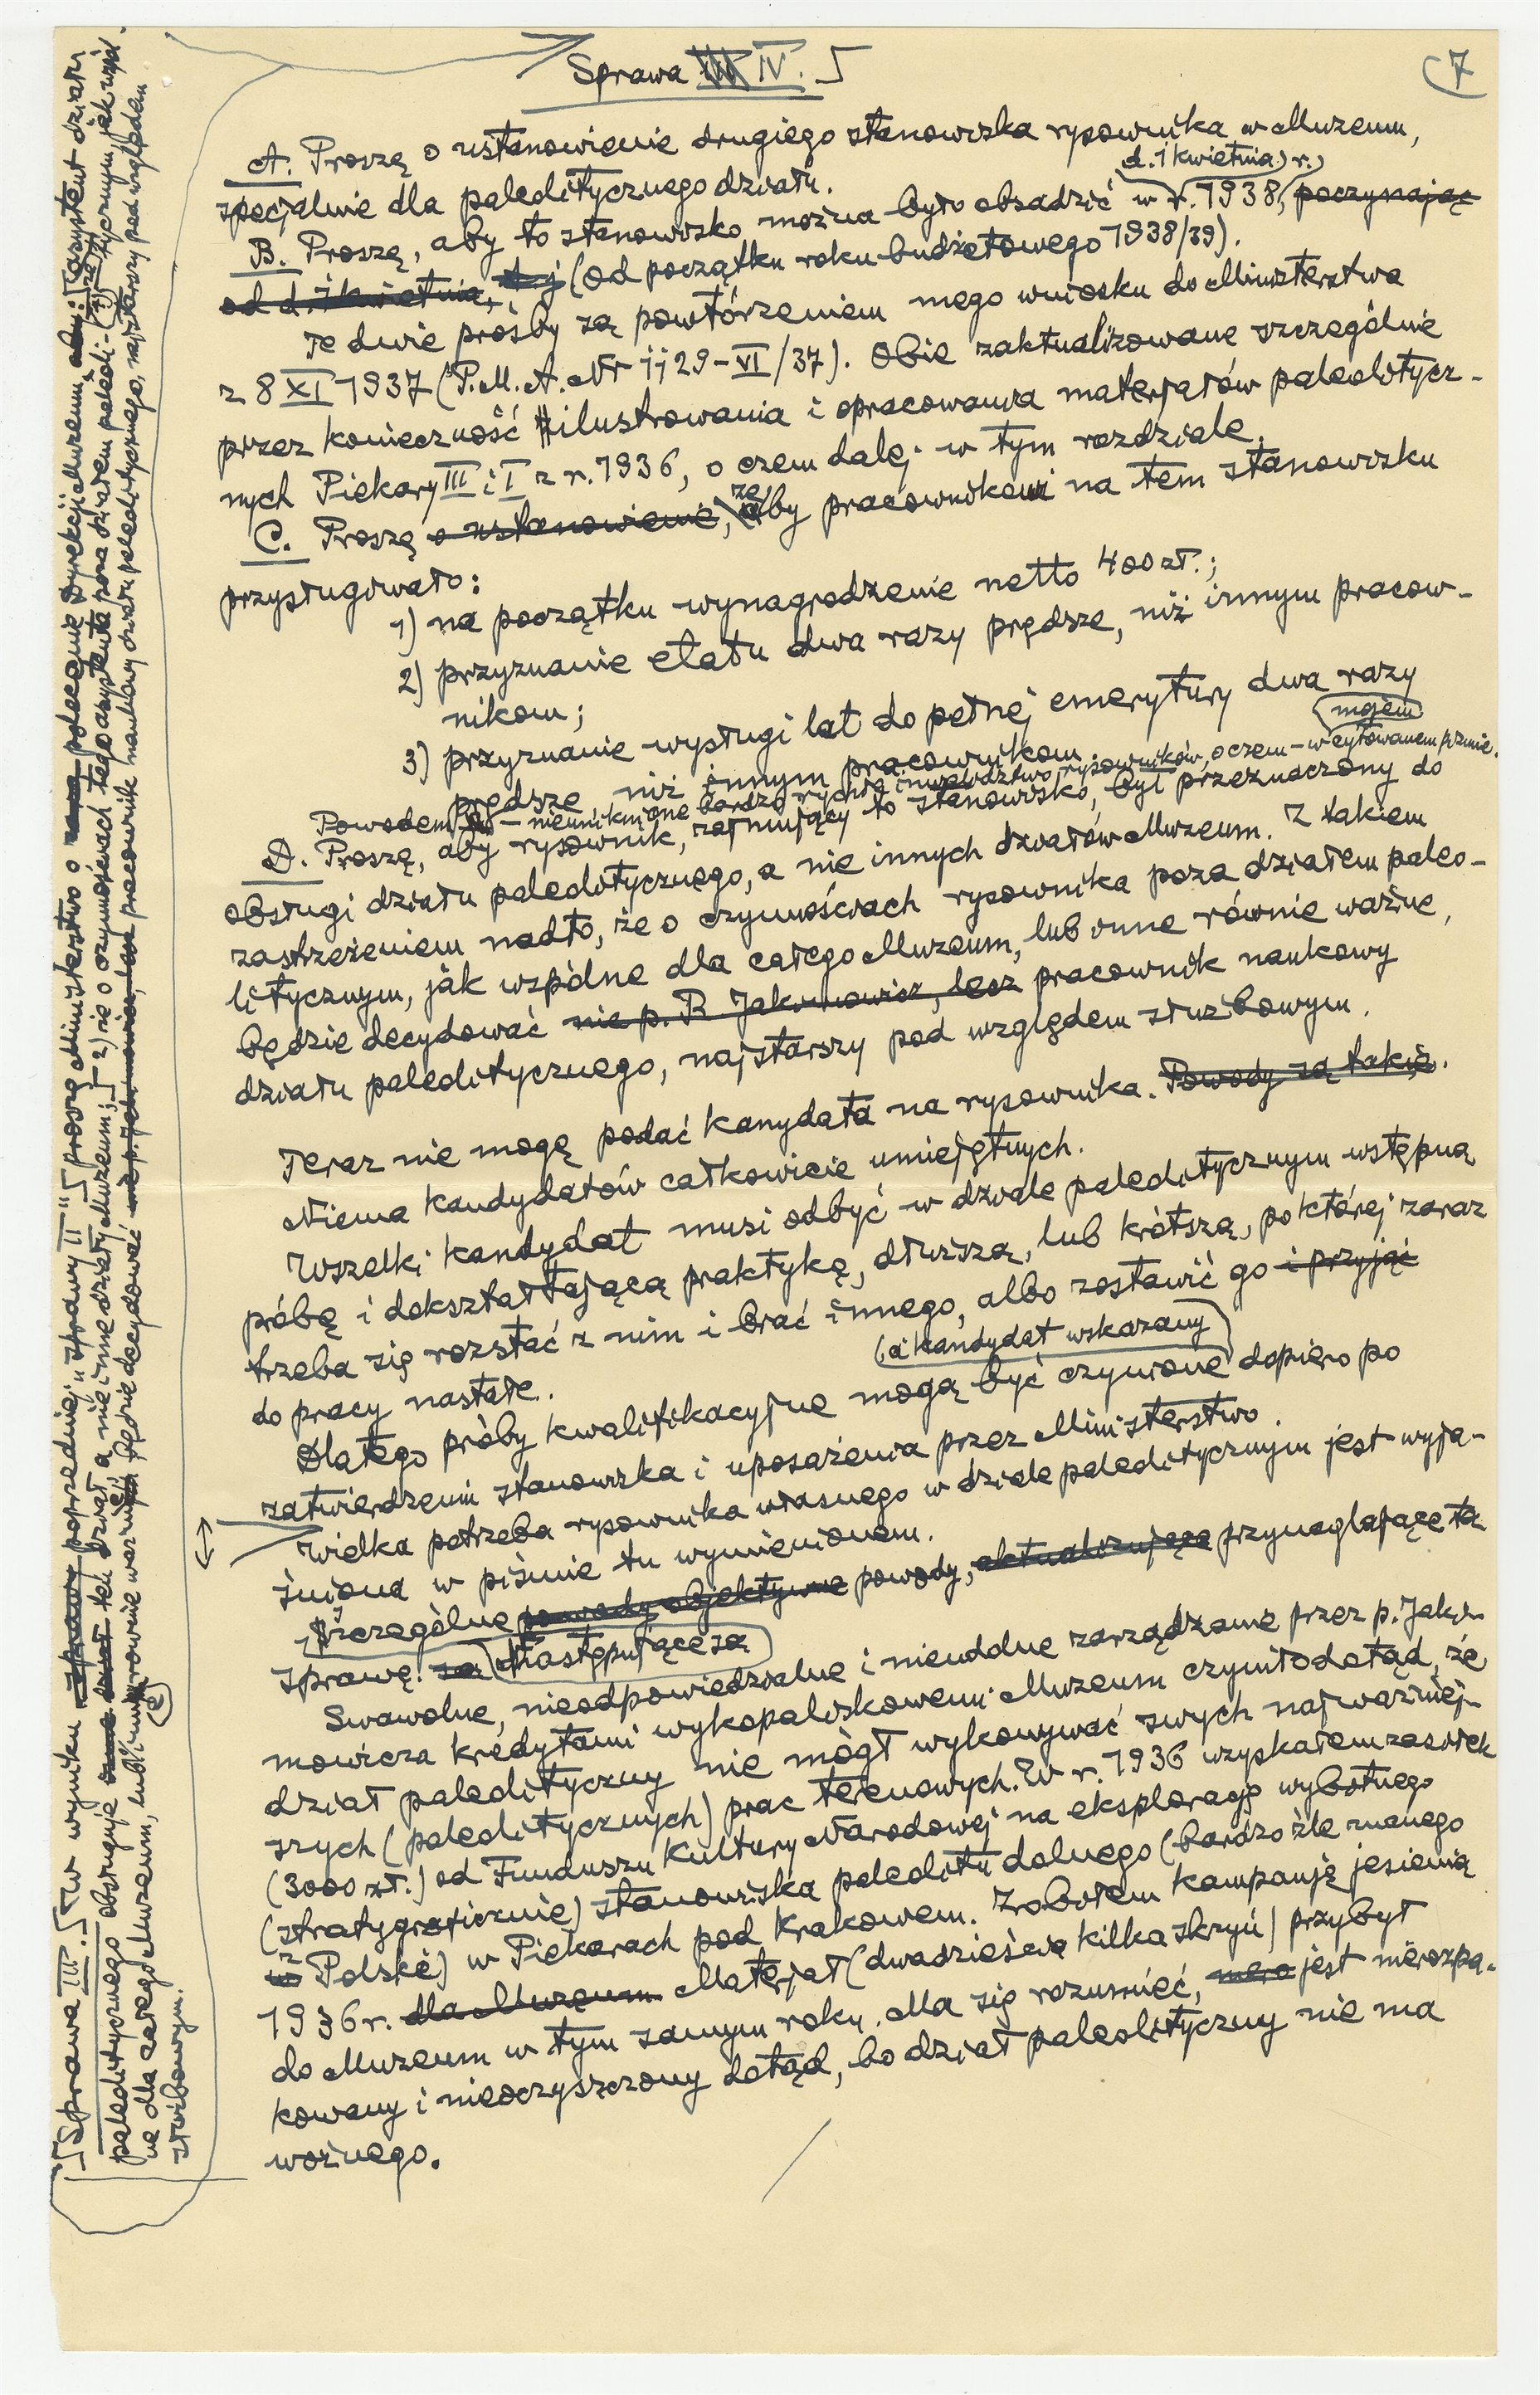 7
Sprawa III IV.
A. Proszę o ustanowienie drugiego stanowiska rysownika w Muzeum,
specjalnie dla paleolitycznego działu.
d. 1 kwietnia r.
B. Proszę, aby to stanowisko można było obsadzić w r. 1938, poczynając
od d. 1 kwietnia, t.j. (od początku roku budżetowego 1938/39).
Te dwie prośby są powtórzeniem mego wniosku do Ministerstwa
z 8 XI 1937 (P.M.A. Nr 1129-VI/37). Obie zaktualizowane szczególnie
przez konieczność ilustrowania i opracowania materjałów paleolitycz-
nych Piekary III i I z r. 1936, o czem dalej w tym rozdziale.
C. Proszę o ustanowienie, żeby pracownikowi na tem stanowisku
przysługiwało:
1) na początku wynagrodzenie netto 400 zł.;
2) przyznanie etatu dwa razy prędsze, niż innym pracow-
nikom;
3) przyznanie wysługi lat do pełnej emerytury dwa razy
prędsze, niż innym pracownikom.
mojem
Powodem – nieuniknione bardzo rychłe inwalidztwo rysowników, o czem – w cytowanem piśmie.
D. Proszę, aby rysownik, zajmujący to stanowisko, był przeznaczony do
obsługi działu paleolitycznego, a nie innych działów Muzeum. Z takiem
zastrzeżeniem nadto, że o czynnościach rysownika poza działem paleo-
litycznym, jak wspólne dla całego Muzeum, lub inne równie ważne,
będzie decydować nie p. R. Jakimowicz, lecz pracownik naukowy
działu paleolitycznego, najstarszy pod względem służbowym.
Teraz nie mogę podać kanydata na rysownika. Powody są takie.
Niema kandydatów całkowicie umiejętnych.
Wszelki kandydat musi odbyć w dziale paleolitycznym wstępną
próbę i dokształtającą praktykę, dłuższą, lub krótszą, po której zaraz
trzeba się rozstać z nim i brać innego, albo zostawić go i przyjąć
do pracy nastałe.
(a kandydat wskazany)
Dlatego próby kwalifikacyjne mogą być czynione dopiero po
zatwierdzeniu stanowiska i uposażenia przez Ministerstwo.
Wielka potrzeba rysownika własnego w dziale paleolitycznym jest wyja-
śniona w piśmie tu wymienionem.
Szczególne powody objektywne powody, aktualizujące przynaglające tę
sprawę: są następujące są
Swawolne, nieodpowiedzialne i nieudolne zarządzanie przez p. Jaki-
mowicza kredytami wykopaliskowemi Muzeum czyniło dotąd, że
dział paleolityczny nie mógł wykonywać swych najważniej-
szych (paleolitycznych) prac terenowych. W r. 1936 uzyskałem zasiłek
(3000 zł.) od Funduszu Kultury Narodowej na eksplorację wybitnego
(stratygraficznie) stanowiska paleolitu dolnego (bardzo źle znanego
w z Polski) w Piekarach pod Krakowem. Zrobiłem kampanję jesienią
1936 r. dla Muzeum Materjał (dwadzieścia kilka skrzyń) przybył
do Muzeum w tym samym roku. Ma się rozumieć, jest nierozpa-
kowany i nieoczyszczony dotąd, bo dział paleolityczny nie ma
woźnego.
Sprawa III. W wyniku sprawy poprzedniej „sprawy II" proszę Ministerstwo o polecenie Dyrekcji Muzeum aby: 1) asystent działu
paleolitycznego obsługiwał ten dział, a nie inne działy Muzeum; 2) że o czynnościach tego asystenta poza działem paleoli-tycznym, jak wspól-
ne dla całego Muzeum, lub inne równie ważne, będzie decydować nie p. Jakimowicz, lecz pracownik naukowy działu paleolitycznego, najstarszy pod względem
służbowym.